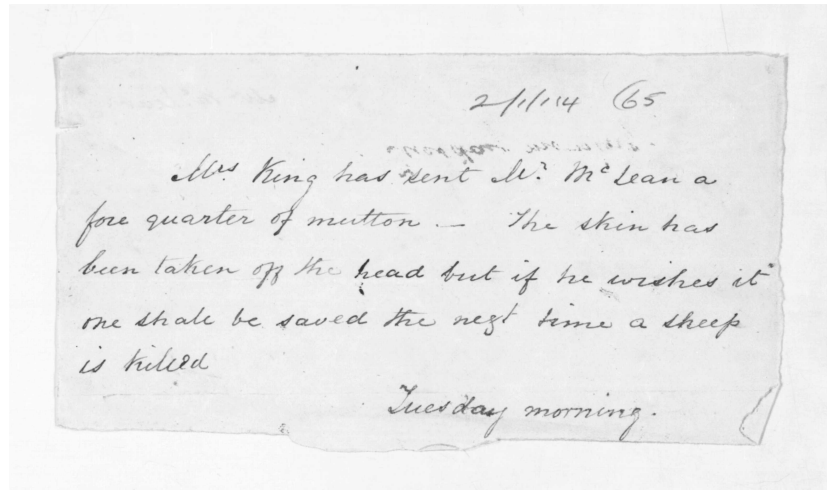 2/1/114 (65
Mrs King has sent Mr. McLean a
fore quarter of mutton — The skin has
been taken off the head but if he wishes it
one shall be saved the next time a sheep
is killed
Tuesday morning.